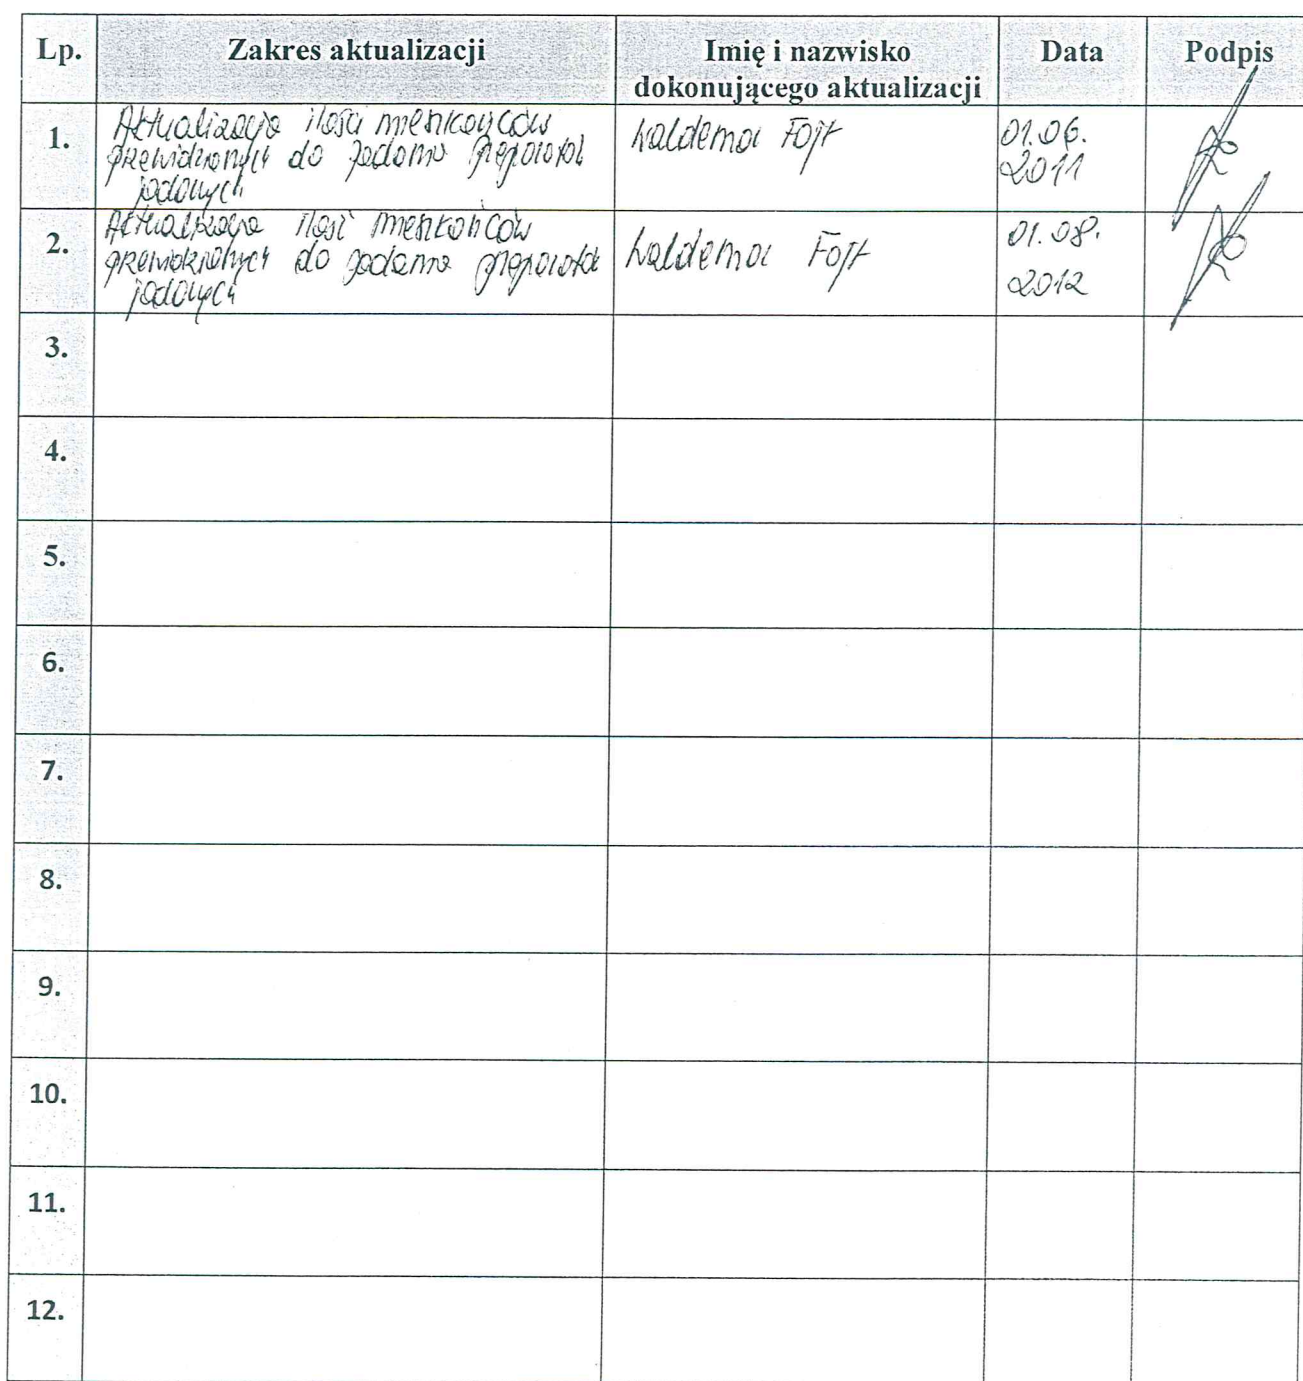 Lp. Zakres aktualizacji Imię i nazwisko dokonującego aktualizacji Data Podpis
1. Aktualizacja ilości mieszkańców
przewidzianych do podania preparatów
jodowych
Waldemar Fojt
01.06.
2011
2. Aktualizacja ilość mieszkańców
przewidzianych do podania preparatów
jodowych
Waldemar Fojt
01.08.
2012
3.
4.
5.
6.
7.
8.
9.
10.
11.
12.